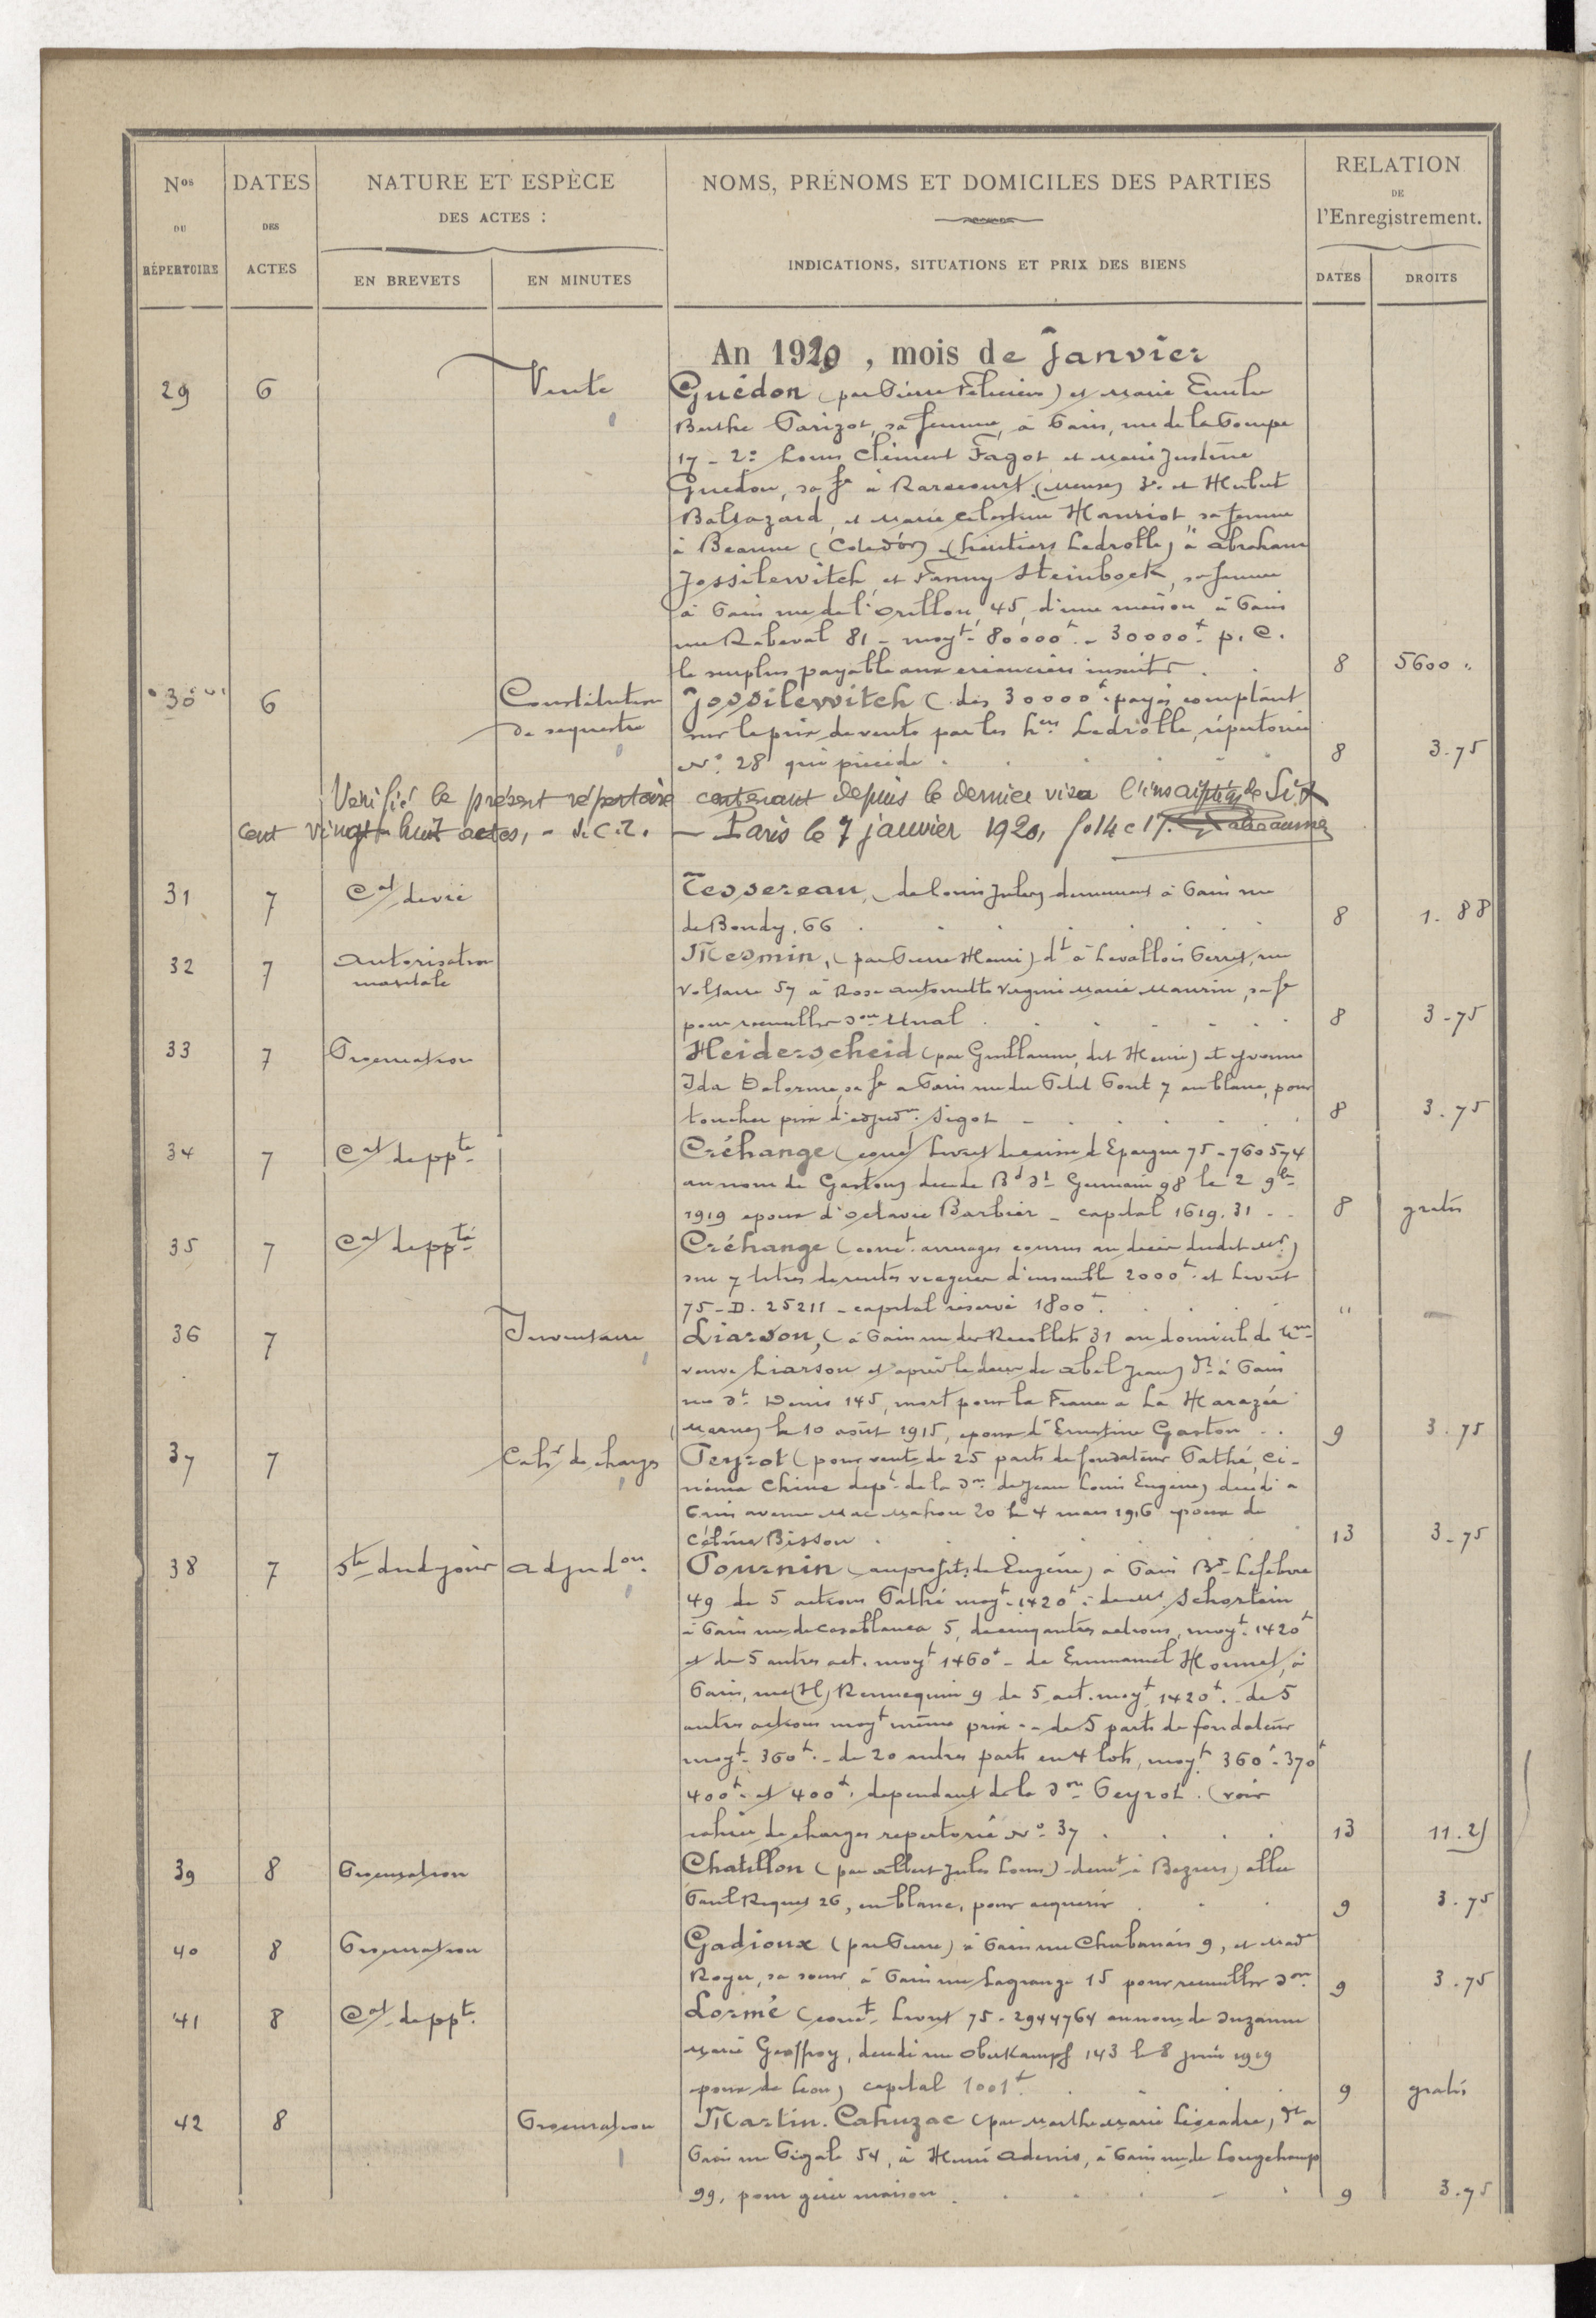 Nos DU RÉPERTOIRE
DATES DES ACTES
NATURE ET ESPÈCE DES ACTES :
EN BREVETS
EN MINUTES
NOMS, PRÉNOMS ET DOMICILES DES PARTIES
INDICATIONS, SITUATIONS ET PRIX DES BIENS
RELATION DE l'Enregistrement.
DATES
DROITS
An 1920, mois de Janvier
29 6 Vente Guédon (par Pierre Félicien) et Marie Emilie
Berthe Parizot, sa femme, à Paris, rue de la Pompe
17 - 2° Louis Clément Fagot et Marie Justine
Guédon, sa fe à Rarecourt (Meuse) 3° et Hubert
Baltazard, et Marie Celestine Henriot, sa femme
à Beaune (Cote d'or) - (héritiers Ledrolle) à Abraham
Jossilewitch, et Fanny Steinbock, sa femme
à Paris rue de l'Orillon, 45, d'une maison à Paris
rue Rebeval 81 - moyt 80000f. - 30000f p. C.
le surplus payable aux créanciers inscrits . . 8 5600 "
30 6 Constitution Jossilewitch (des 30000f payés comptant
de sequestre sur le prix de vente par les hers Ledrolle, répertoriée
No 28 qui précède . 8 3.75
Vérifié le présent répertoire contenant depuis le dernier visa l'inscription de
cent vingt huit actes, - Paris le 7 janvier 1920, fo 14 c 17.
31 7 Cat de vie Tessereau, (de Louis Jules) demeurant à Paris rue
de Bondy, 66 . 8 1.88
32 7 Autorisation Mesmin, (par Pierre Henri) dt à Levallois Perret, rue
maritale Voltaire 57 à Rose Antoinette Virginie Marie Maurin, sa fe
pour recueillir son Unal . 8 3-75
33 7 Procuration Heiderscheid (par Guillaume, dit Henri) et Yvonne
Ida Delorme, sa fe à Paris rue du Petit Pont 7 en blanc, pour
toucher prix d'adjudon Sigot - 8 3.75
34 7 Cat de ppté Créhange (conct Livret de caisse d'Epargne 75-760574
au nom de Gaston) décédé Bd St Germain 98 le 2 9bre
1919 époux d'Octavie Barbier - capital 1619.31 - . 8 gratis
35 7 Cat de ppté Créhange (conct arrérages courus au décès dudit Mr)
sur 7 titres de rentes viagères d'ensemble 2000f. et Livret
75-D. 25211 - capital réservé 1800f. " —
36 7 Inventaire Liarson, (à Paris rue des Recollets 31 au domicile de Mme
veuve Liarson et après le décès de Abel Jean) dt à Paris
rue St Denis 145, mort pour la France à La Harazée
(Marne) le 10 août 1915, époux d'Ernestine Gaston . . 9 3.75
37 7 Cahr de charges Peyrot (pour vente de 25 parts de fondateur Pathé, ci-
néma Chine dept de la son de Jean Louis Eugène) décédé à
Paris avenue Mac Mahon 20 le 4 mars 1916 époux de
Célina Bisson . 13 3-75
38 7 Ste dud jour Adjudon. Tournin (au profit de Eugène) à Paris Bd Lefebvre
49 de 5 actions Pathé moyt 1420f - de Mr Schortein
à Paris rue de Casablanca 5, de cinq autres actions, moyt 1420f
et de 5 autres act. moyt 1460f - de Emmanuel Honnet, à
Paris, rue (H) Rennequin 9 de 5 act. moyt 1420f. - de 5
autres actions moyt même prix - de 5 parts de fondateur
moyt 360f. - de 20 autres parts en 4 lots, moyt 360f - 370f
400f. et 400f. dépendant de la son Peyrot. (voir
cahier de charges répertorié No 37 . 13 11.25
39 8 Procuration Chatillon (par Albert Jules Louis) demt à Beziers, allée
Paul Riquet 26, en blanc, pour acquérir . 9 3.75
40 8 Procuration Gadioux (par Pierre) à Paris rue Chabanais 9, et Made
Royer, sa soeur, à Paris rue Lagrange 15 pour recueillir son 9 3.75
41 8 Cat de ppté. Lormé (conct Livret 75-2944764 au nom de Suzanne
Marie Geoffroy, décédée rue Oberkampf 143 le 8 juin 1919
épouse de Léon) capital 1001f. 9 gratis
42 8 Procuration Martin-Cahuzac (par Marthe Marie Ligeadre, dt à
Paris rue Pigale 54, à Henri Adenis, à Paris rue de Longchamp
99, pour gérer maison . 9 3.75